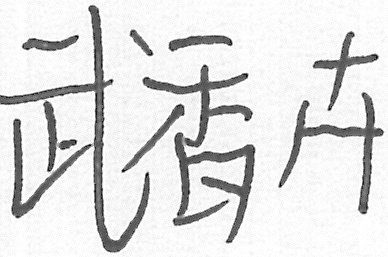 武香卉